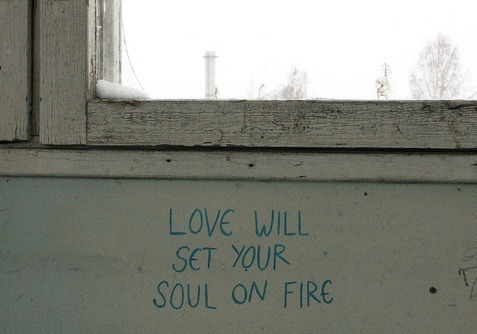 LOVE WILL
SET YOUR
SOUL ON FIRE